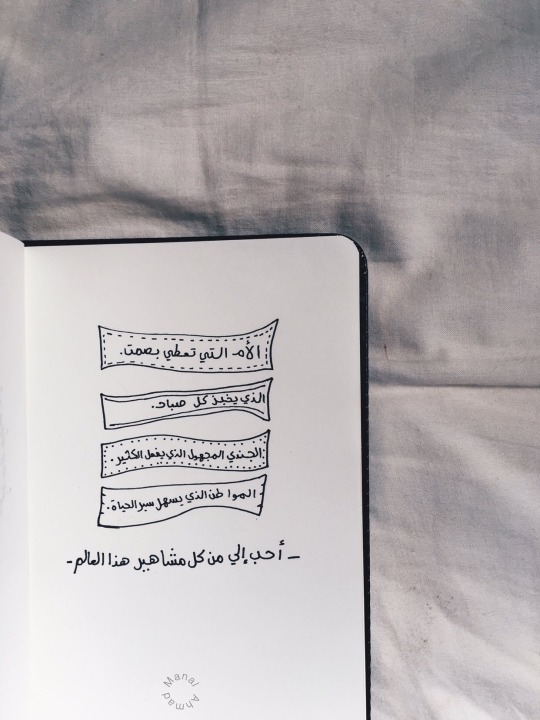 الأم التي تعطي بصمت.
الذي يخبز كل صباح.
الجندي المجهول الذي يفعل الكثير.
المواطن الذي يسهل سير الحياة.
_ أحب إلي من كل مشاهير هذا العالم -
Manal Ahmad